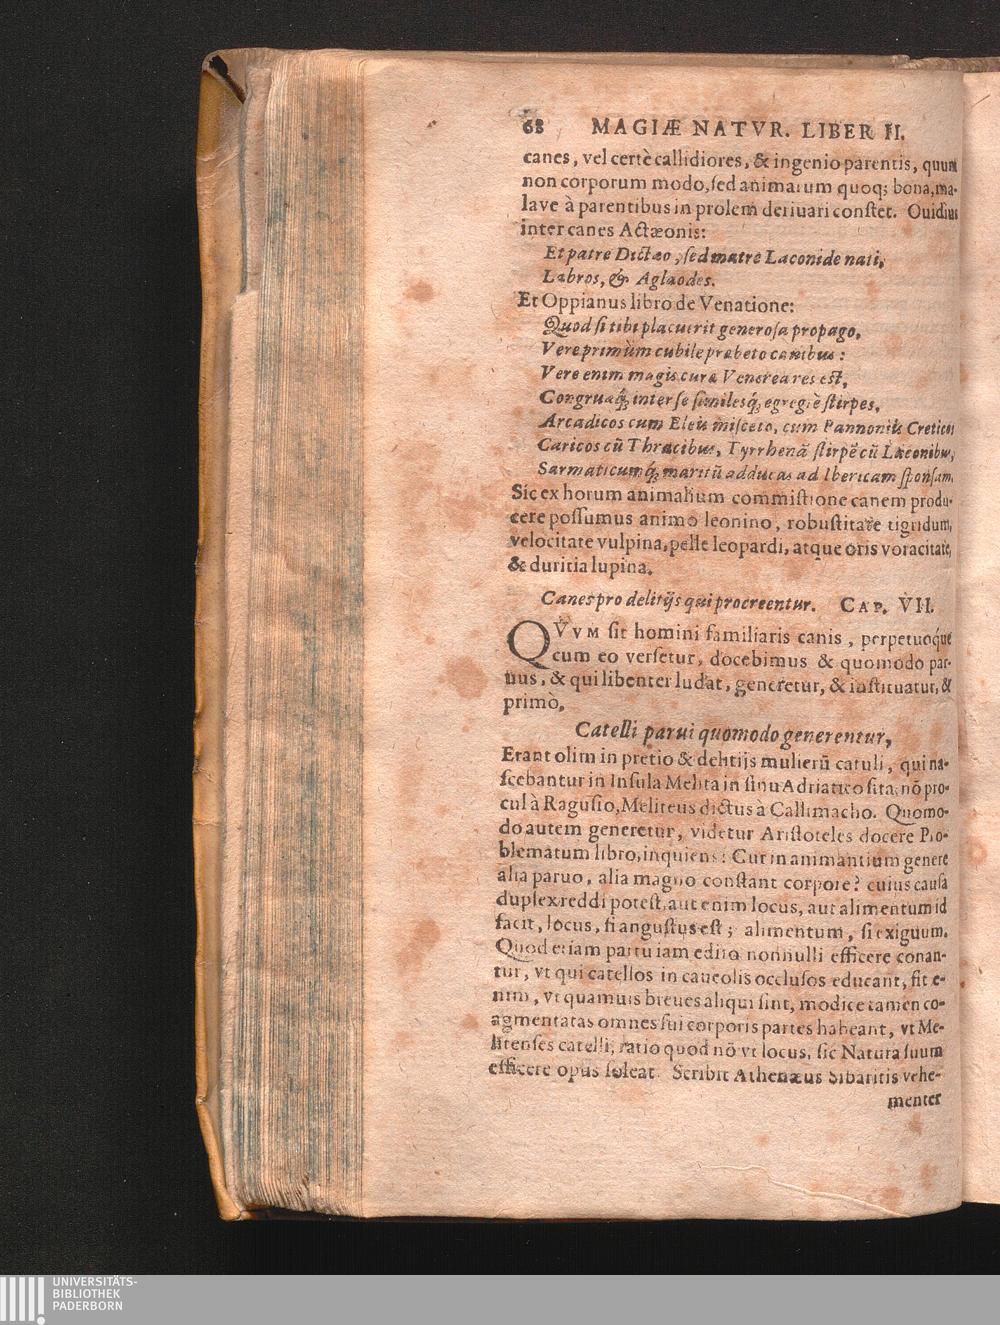 68 MAGIÆ NATVR. LIBER II.
canes, vel certè callidiores, & ingenio parentis, quum
non corporum modo, sed animarum quoq; bona, ma-
lave à parentibus in prolem deriuari constet. Ouidius
inter canes Actæonis:
Et patre Dictæo, sed matre Laconide nati,
Labros, & Aglaodes.
Et Oppianus libro de Venatione:
Quod si tibi placuerit generosa propago,
Vere primùm cubile præbeto canibus:
Vere enim magis curæ Venereares est,
Congruaq́; inter se similesq́; egregiè stirpes,
Arcadicos cum Eleis misceto, cum Pannoniis Creticos
Caricos cũ Thracibus, Tyrrhenã stirpẽ cũ Laconibus,
Sarmaticumq́; maritũ adducas ad Ibericam sponsam.
Sic ex horum animalium commistione canem produ-
cere possumus animo leonino, robustitate tigridum,
velocitate vulpina, pelle leopardi, atque oris voracitate,
& duritia lupina.
Canes pro delitijs qui procreentur. CAP. VII.
QVVM sit homini familiaris canis, perpetuoque
cum eo versetur, docebimus & quomodo par-
uus, & qui libenter ludat, generetur, & instituatur, &
primò,
Catelli parui quomodo generentur,
Erant olim in pretio & delitijs mulierũ catuli, qui na-
scebantur in Insula Melita in sinu Adriatico sita, nõ pro-
cul à Ragusio, Meliteus dictus à Callimacho. Quomo-
do autem generetur, videtur Aristoteles docere Pro-
blematum libro, inquiens: Cur in animantium genere
alia paruo, alia magno constant corpore? cuius causa
duplex reddi potest, aut enim locus, aut alimentum id
facit, locus, si angustus est; alimentum, si exiguum.
Quod etiam partu iam edito nonnulli efficere conan-
tur, vt qui catellos in caueolis occlusos educant, fit e-
nim, vt quamuis breues aliqui sint, modice tamen co-
agmentatas omnes sui corporis partes habeant, vt Me-
litenses catelli, ratio quod nõ vt locus, sic Natura suum
efficere opus soleat. Scribit Athenæus Sibaritis vehe-
menter
UNIVERSITÄTS-
BIBLIOTHEK
PADERBORN